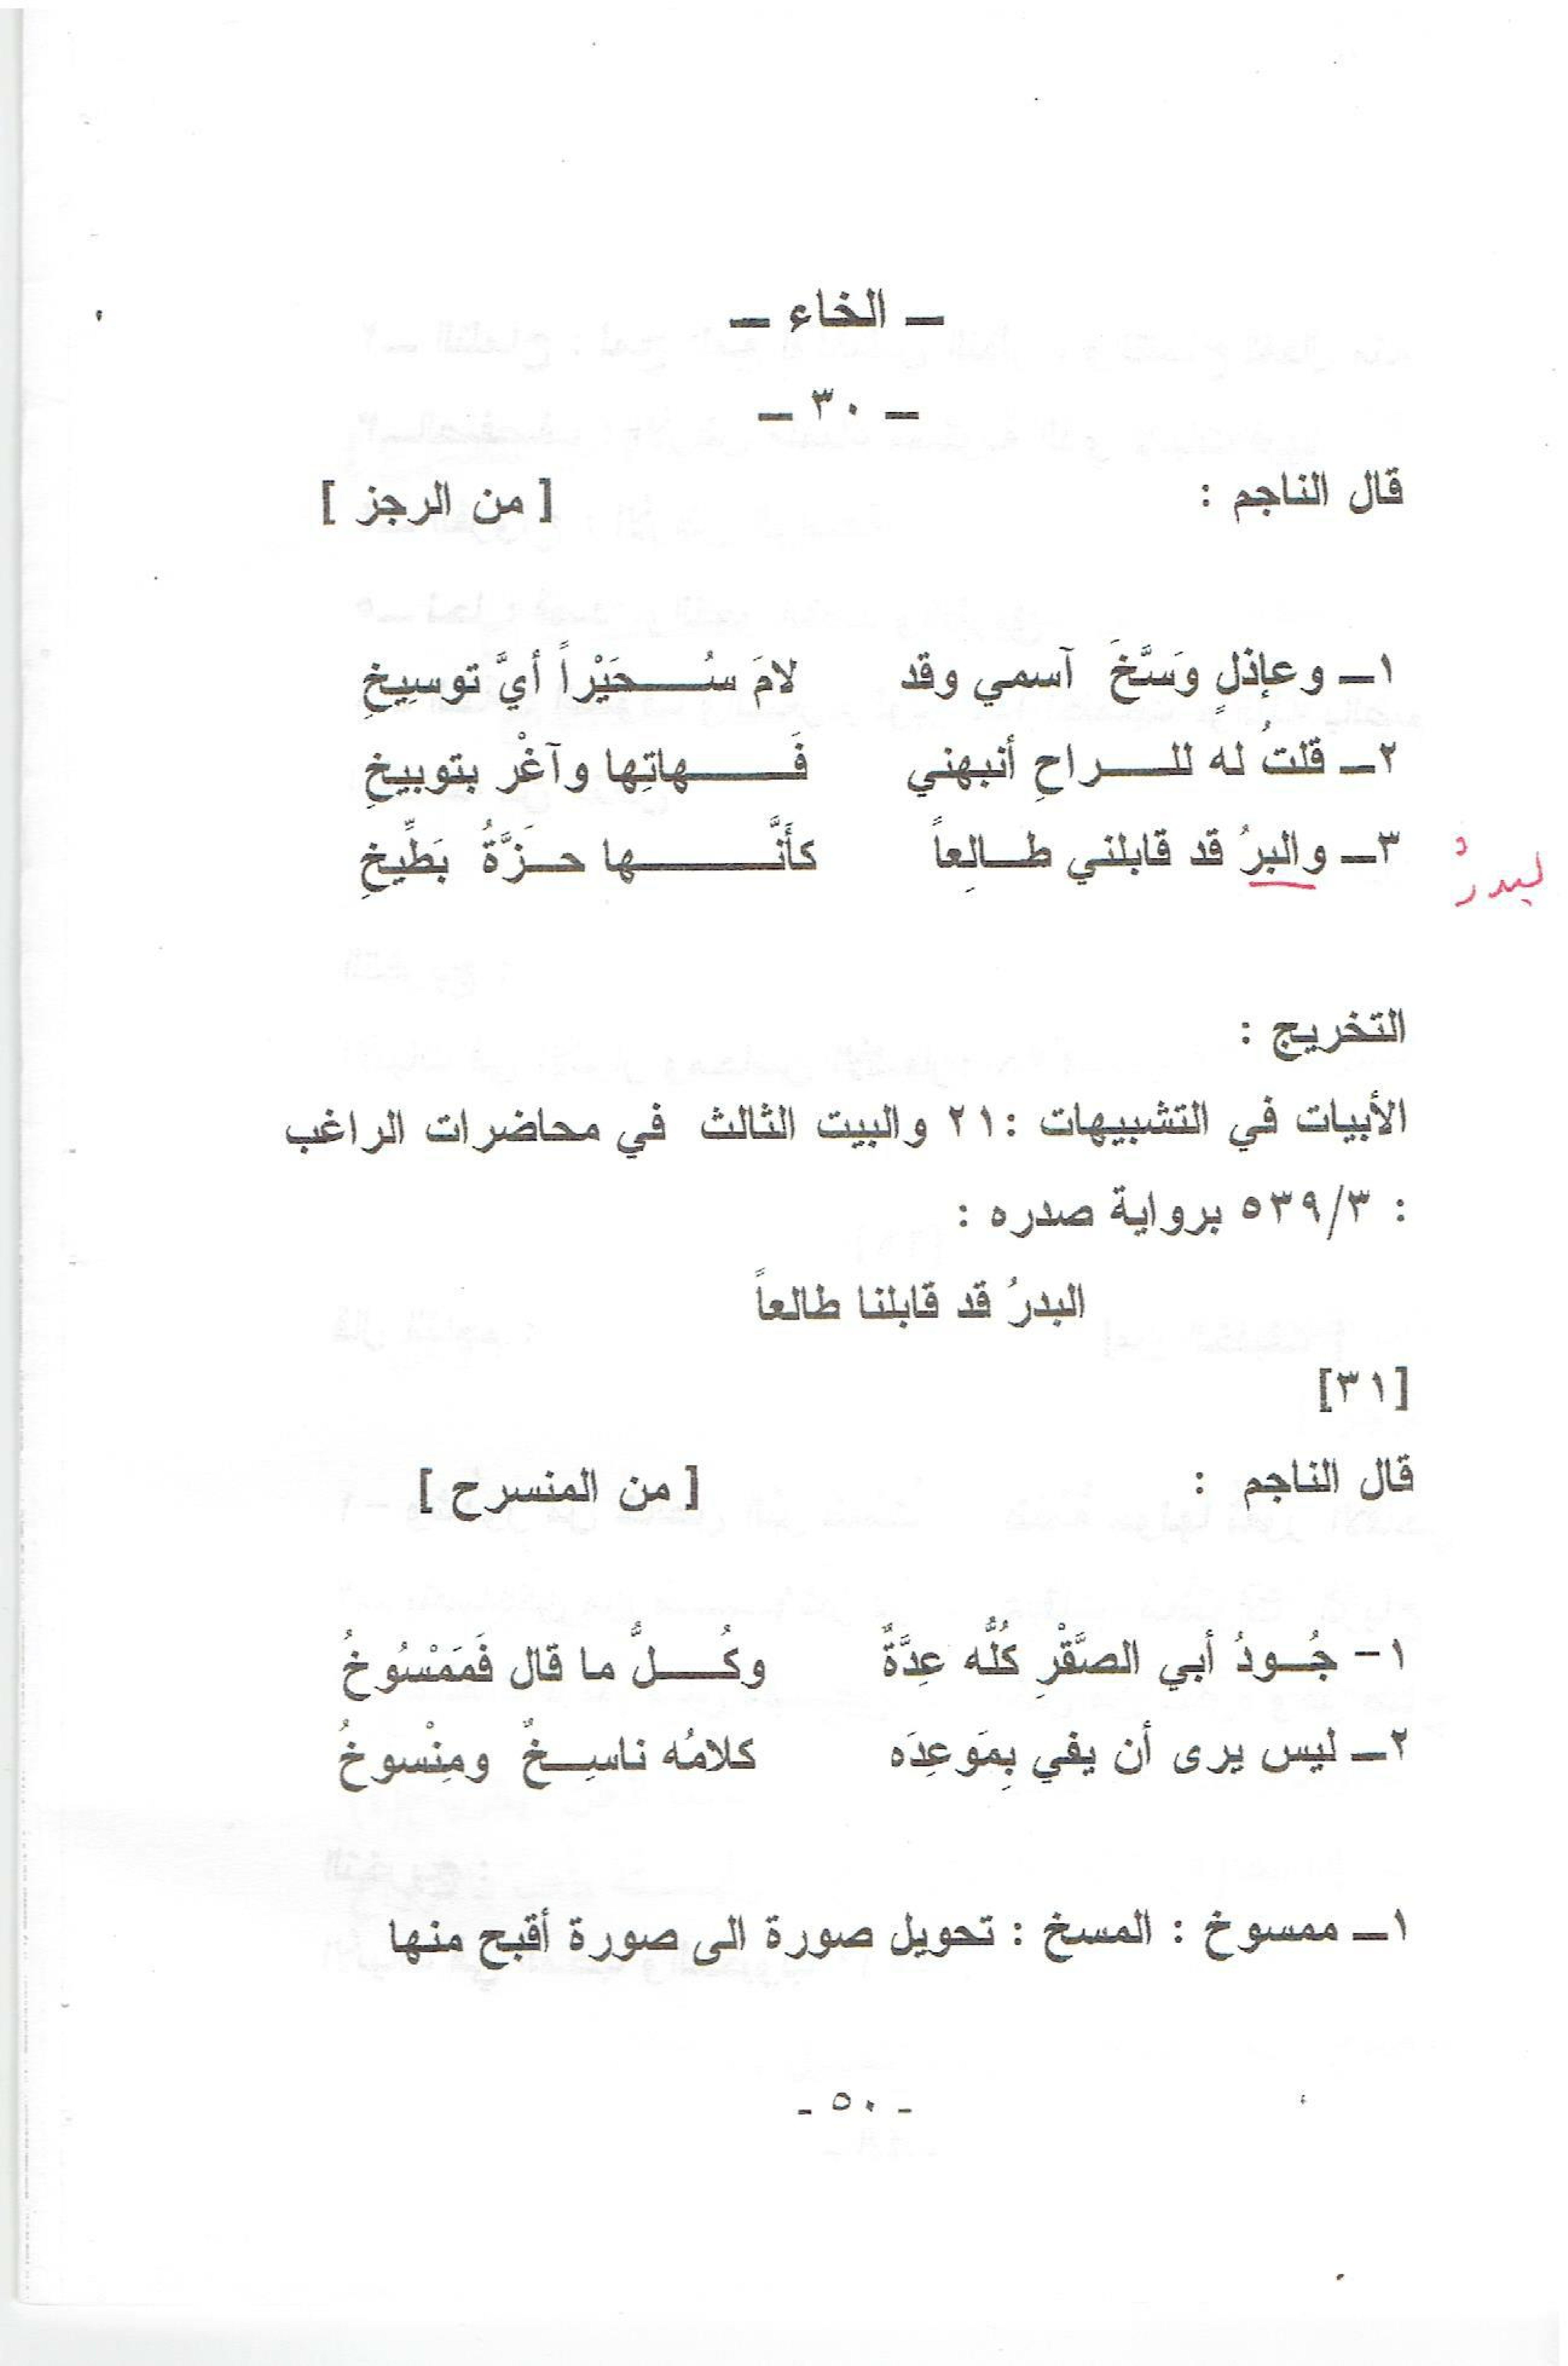 ــ الخاء ــ
ــ ٣٠ ــ
قال الناجم : [ من الرجز ]
١ــ وعاذلٍ وَسَّخَ آسمي وقد لامَ سُـــحَيْراً أيَّ توسِيخِ
٢ــ قلتُ له للـــراحِ أنبهني فَـــهاتِها وآغْر بتوبيخِ
٣ــ والبرُ قد قابلني طـالِعاً كأنَّـــها حـزَّةُ بَطِّيخِ
لبدرُ
التخريج :
الأبيات في التشبيهات :٢١ والبيت الثالث في محاضرات الراغب
: ٥٣٩/٣ برواية صدره :
البدرُ قد قابلنا طالعاً
[٣١]
قال الناجم : [ من المنسرح ]
١- جُـودُ أبي الصَّقْرِ كُلُّه عِدَّةٌ وكُـــلُّ ما قال فَمَمْسُوخُ
٢ــ ليس يرى أن يفي بِمَوعِدَه كلامُه ناسِـخٌ ومِنْسوخُ
١ــ ممسوخ : المسخ : تحويل صورة الى صورة أقبح منها
- ٥٠ -